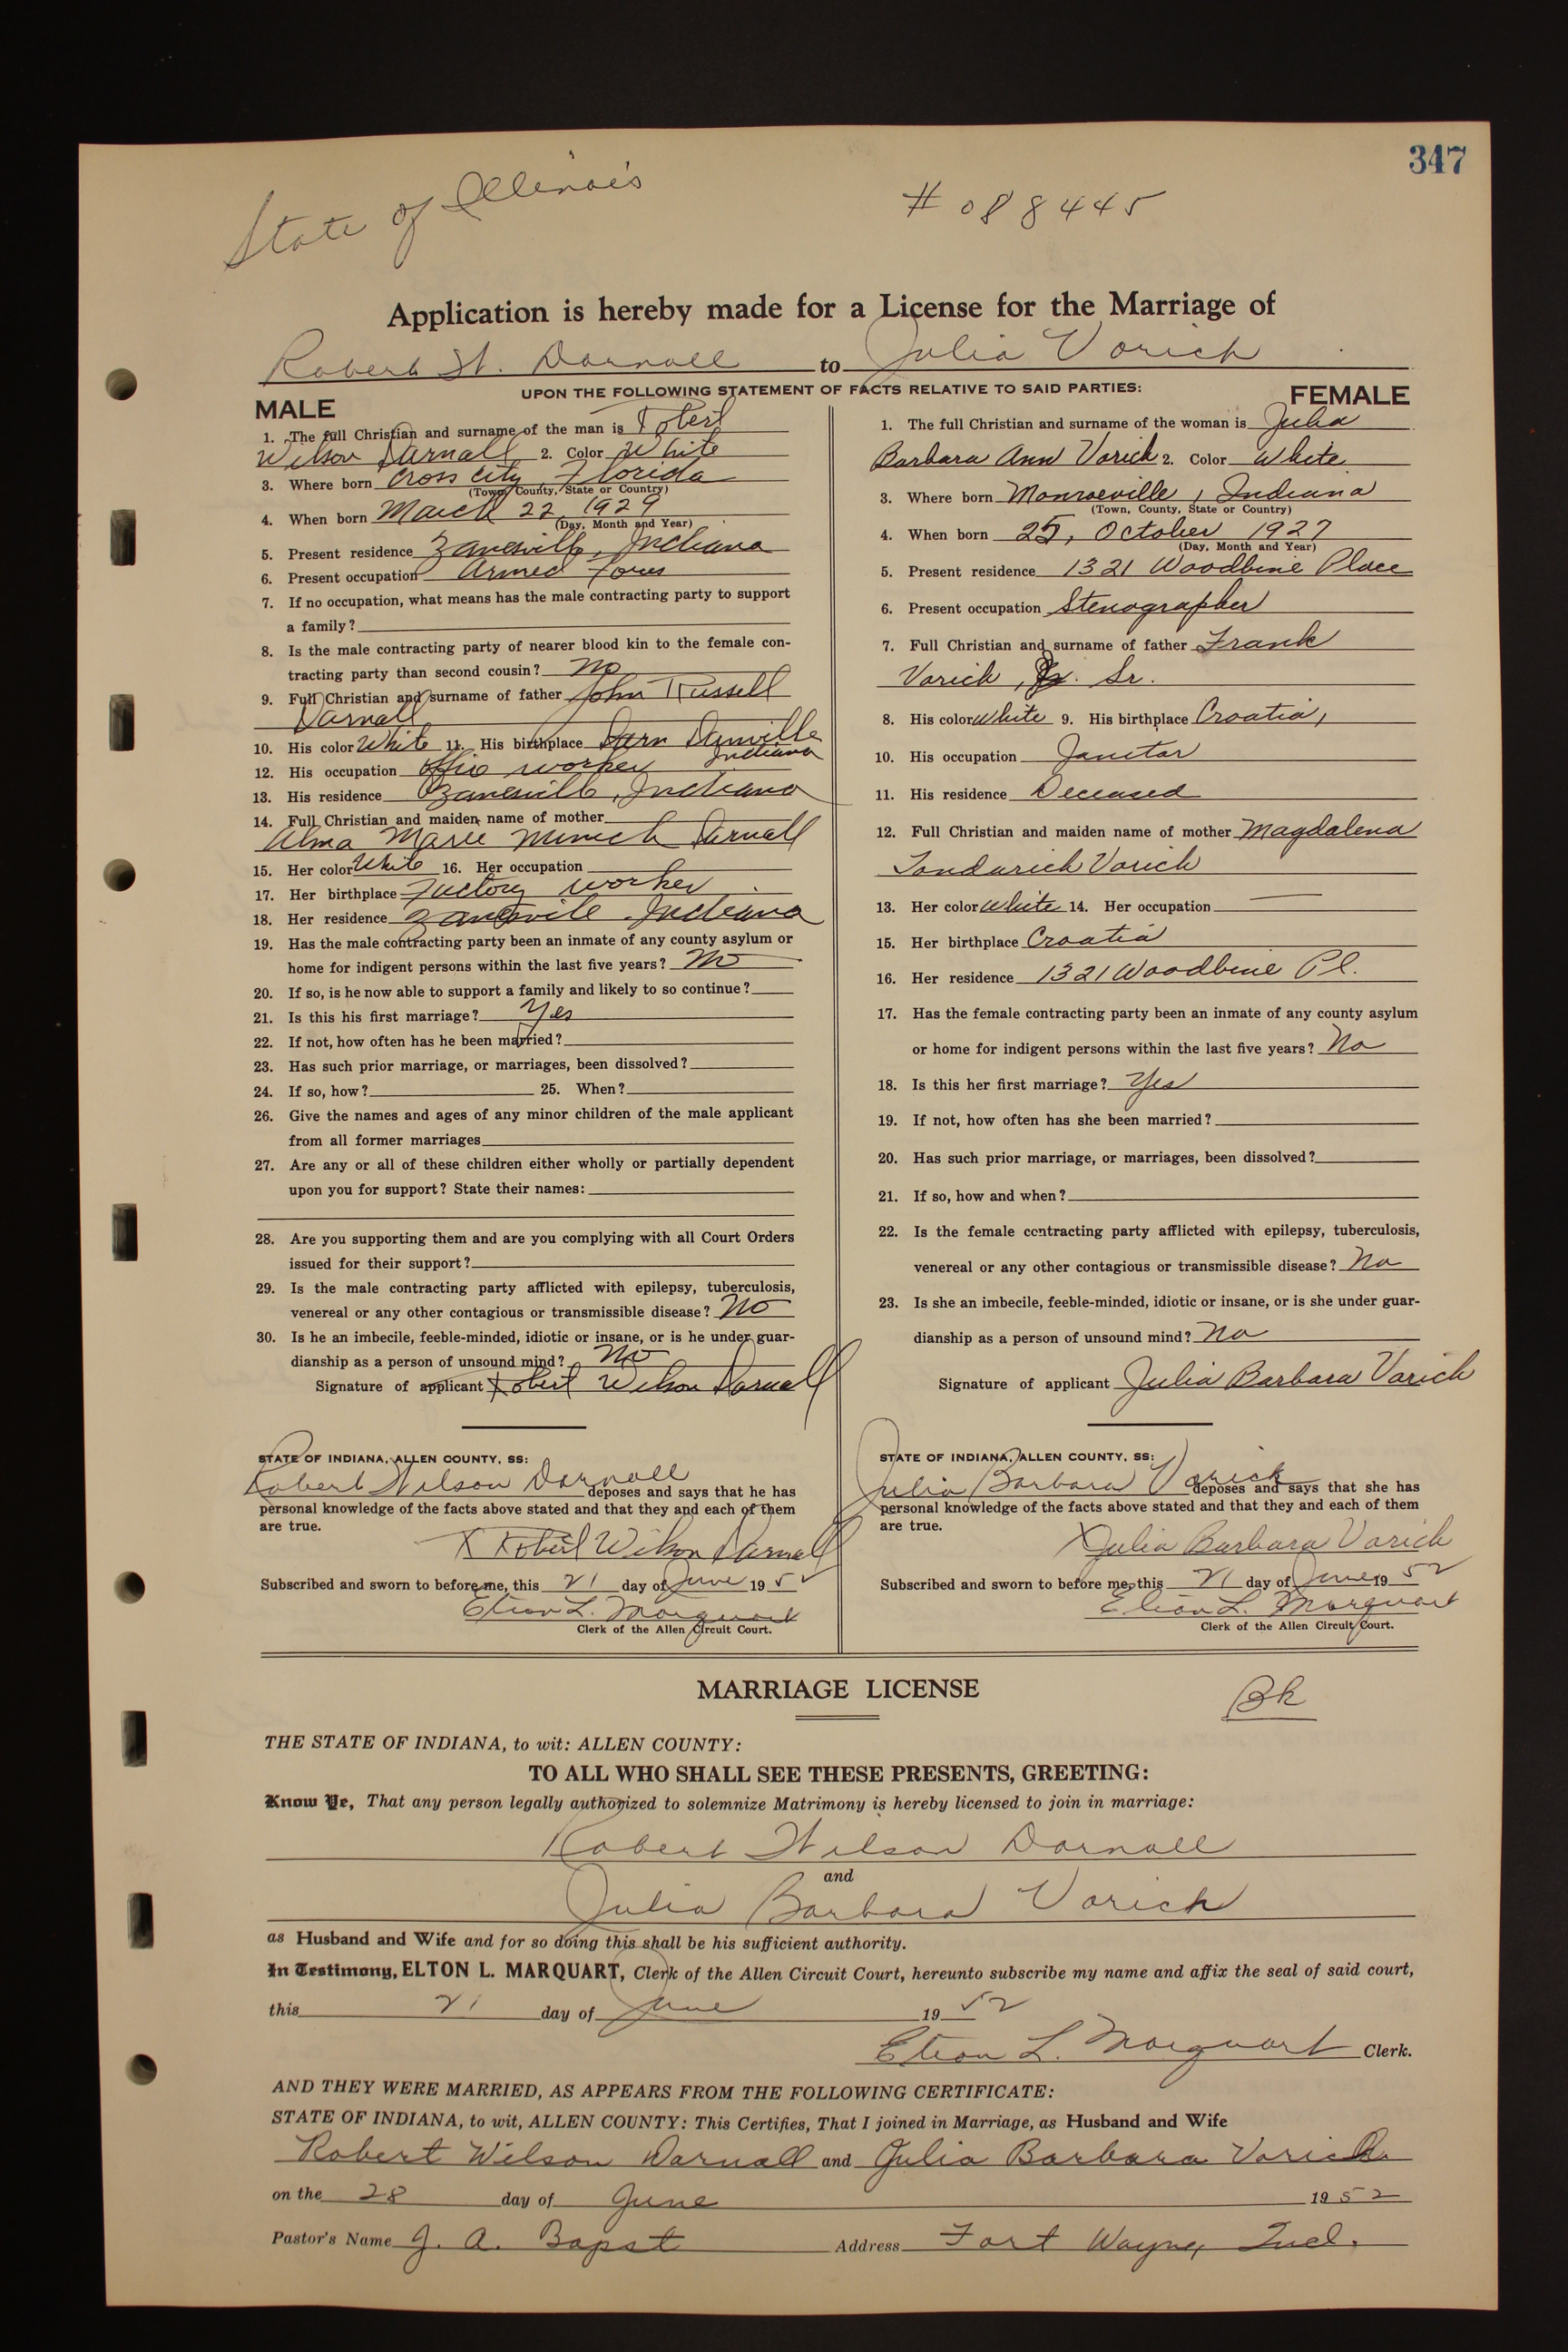 347
State of Illinois
# 088445
Application is hereby made for a License for the Marriage of
Robert W. Darnall to Julia Vorich
UPON THE FOLLOWING STATEMENT OF FACTS RELATIVE TO SAID PARTIES:
MALE
1. The full Christian and surname of the man is Robert
Wilson Darnall 2. Color White
3. Where born Cross City, Florida
(Town, County, State or Country)
4. When born March 22, 1929
(Day, Month and Year)
5. Present residence Zanesville, Indiana
6. Present occupation Armed Forces
7. If no occupation, what means has the male contracting party to support
a family?
8. Is the male contracting party of nearer blood kin to the female con-
tracting party than second cousin? No
9. Full Christian and surname of father John Russell
Darnall
10. His color White 11. His birthplace Danville
Indiana
12. His occupation Office worker
13. His residence Zanesville, Indiana
14. Full Christian and maiden name of mother
Alma Marie Minich Darnall
15. Her color White 16. Her occupation
17. Her birthplace Factory worker
18. Her residence Zanesville Indiana
19. Has the male contracting party been an inmate of any county asylum or
home for indigent persons within the last five years? No
20. If so, is he now able to support a family and likely to so continue?
21. Is this his first marriage? Yes
22. If not, how often has he been married?
23. Has such prior marriage, or marriages, been dissolved?
24. If so, how? 25. When?
26. Give the names and ages of any minor children of the male applicant
from all former marriages
27. Are any or all of these children either wholly or partially dependent
upon you for support? State their names:
28. Are you supporting them and are you complying with all Court Orders
issued for their support?
29. Is the male contracting party afflicted with epilepsy, tuberculosis,
venereal or any other contagious or transmissible disease? No
30. Is he an imbecile, feeble-minded, idiotic or insane, or is he under guar-
dianship as a person of unsound mind? No
Signature of applicant Robert Wilson Darnall
STATE OF INDIANA, ALLEN COUNTY, SS:
Robert Wilson Darnall deposes and says that he has
personal knowledge of the facts above stated and that they and each of them
are true.
X Robert Wilson Darnall
Subscribed and sworn to before me, this 21 day of June 1952
Elton L. Marquart
Clerk of the Allen Circuit Court.
FEMALE
1. The full Christian and surname of the woman is Julia
Barbara Ann Vorich 2. Color White
3. Where born Monroeville, Indiana
(Town, County, State or Country)
4. When born 25, October 1927
(Day, Month and Year)
5. Present residence 1321 Woodbine Place
6. Present occupation Stenographer
7. Full Christian and surname of father Frank
Vorich, Sr.
8. His color White 9. His birthplace Croatia,
10. His occupation Janitor
11. His residence Deceased
12. Full Christian and maiden name of mother Magdalena
Vorich
13. Her color White 14. Her occupation
15. Her birthplace Croatia
16. Her residence 1321 Woodbine Pl.
17. Has the female contracting party been an inmate of any county asylum
or home for indigent persons within the last five years? No
18. Is this her first marriage? Yes
19. If not, how often has she been married?
20. Has such prior marriage, or marriages, been dissolved?
21. If so, how and when?
22. Is the female contracting party afflicted with epilepsy, tuberculosis,
venereal or any other contagious or transmissible disease? No
23. Is she an imbecile, feeble-minded, idiotic or insane, or is she under guar-
dianship as a person of unsound mind? No
Signature of applicant Julia Barbara Vorich
STATE OF INDIANA, ALLEN COUNTY, SS:
Julia Barbara Vorich deposes and says that she has
personal knowledge of the facts above stated and that they and each of them
are true.
X Julia Barbara Vorich
Subscribed and sworn to before me, this 21 day of June 1952
Elton L. Marquart
Clerk of the Allen Circuit Court.
MARRIAGE LICENSE
Bk
THE STATE OF INDIANA, to wit: ALLEN COUNTY:
TO ALL WHO SHALL SEE THESE PRESENTS, GREETING:
Know Ye, That any person legally authorized to solemnize Matrimony is hereby licensed to join in marriage:
Robert Wilson Darnall
and
Julia Barbara Vorich
as Husband and Wife and for so doing this shall be his sufficient authority.
In Testimony, ELTON L. MARQUART, Clerk of the Allen Circuit Court, hereunto subscribe my name and affix the seal of said court,
this 21 day of June 1952
Elton L. Marquart Clerk.
AND THEY WERE MARRIED, AS APPEARS FROM THE FOLLOWING CERTIFICATE:
STATE OF INDIANA, to wit, ALLEN COUNTY: This Certifies, That I joined in Marriage, as Husband and Wife
Robert Wilson Darnall and Julia Barbara Vorich
on the 28 day of June 1952
Pastor's Name J. A. Bapst Address Fort Wayne, Ind.